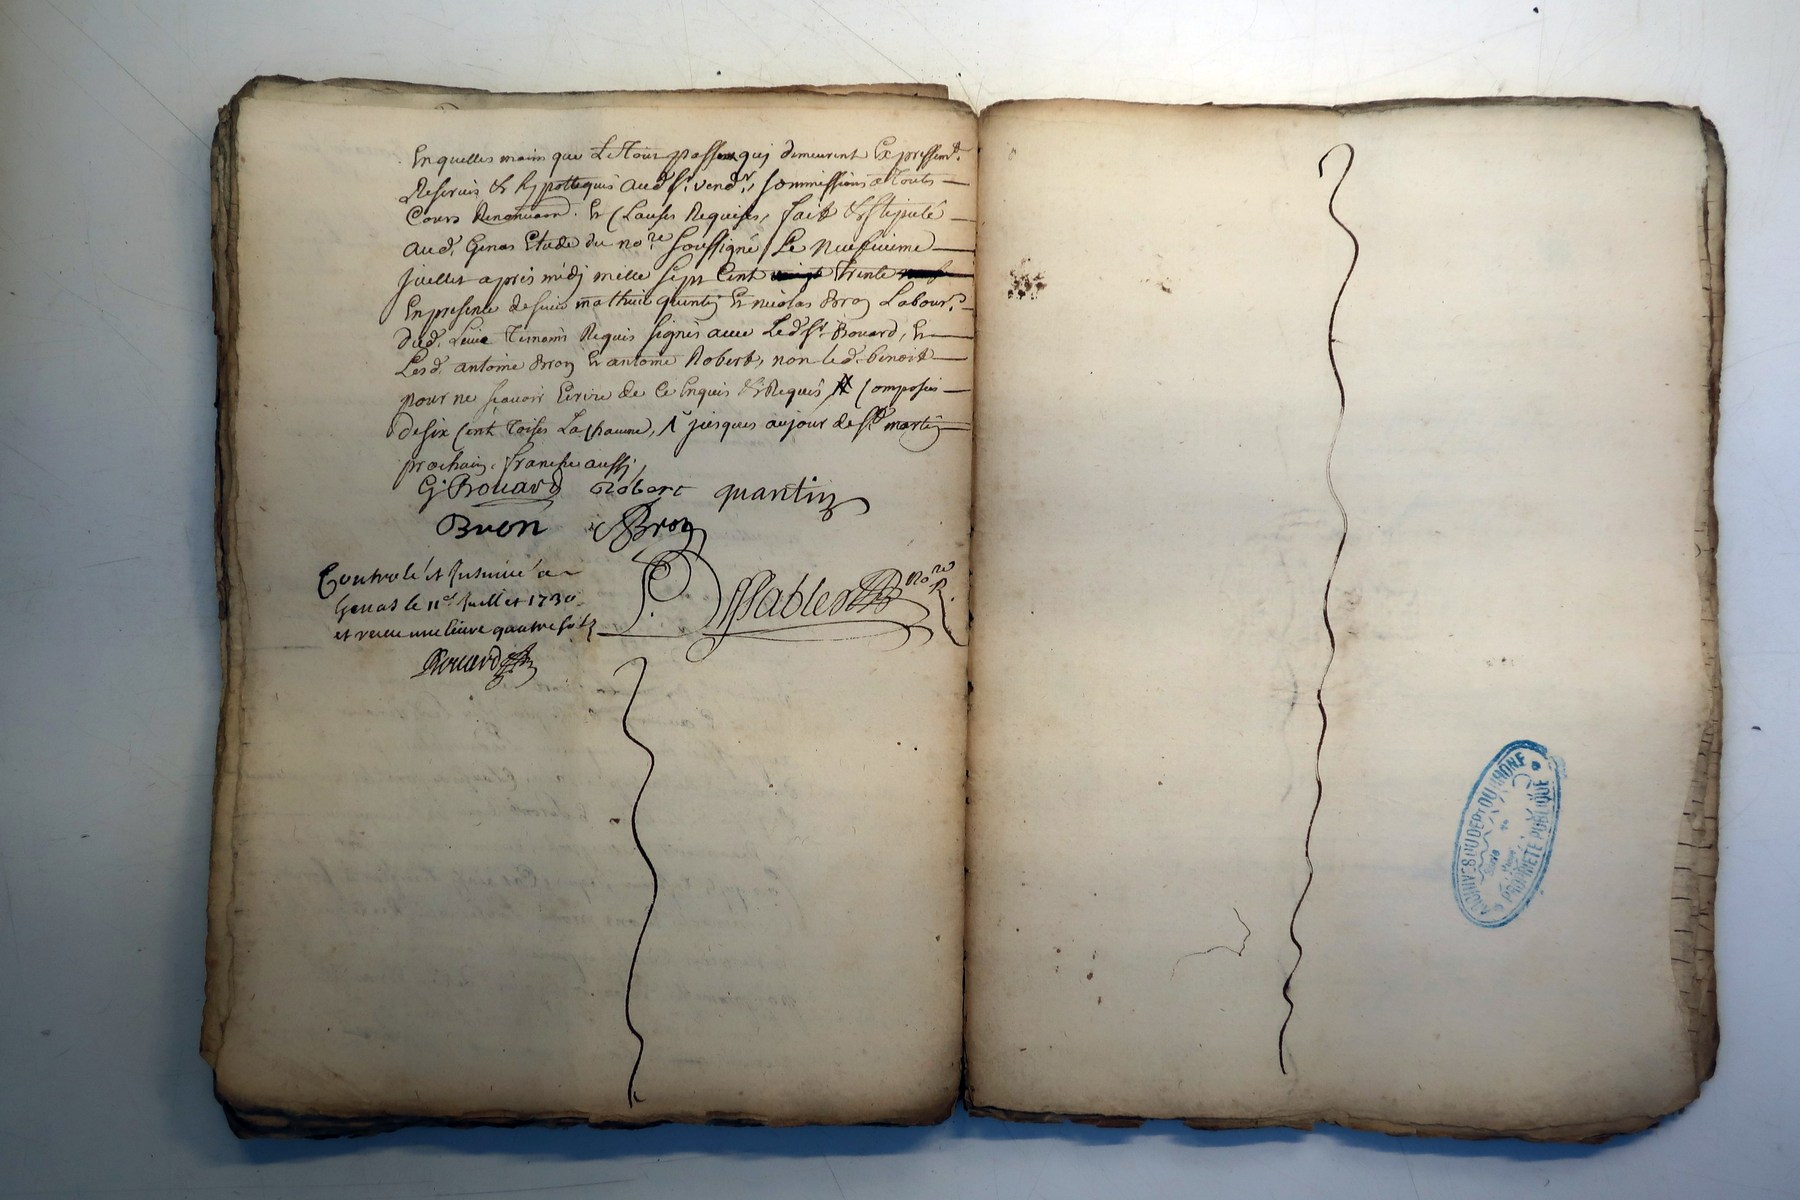 En quelles mains que Le Tout passe qui demeurent Expressemt.
Reservés & hypottequés aud. Sr. vendr., sommissions a Touttes
Cours Renonciaon. Et Clauses Requises, fait & stipulé
aud. Genas Etude du nore. soussigné Le Neufvieme
Juillet après midy mille sept Cent trente
En presence de sieur mathieu quantin Et nicolas Bron Labour.
dud. Lieu Temoins Requis signés avec Led. Sr. Bouard, Et
Lesd. antoine Bron Et antoine Robert, non led. benoit
pour ne sçavoir Ecrire de Ce Enquis & Requis, X Composées
de six Cent Toises La Chacune, Λ jusques aujour de St. martin
prochain, franche aussi,
G. Bouard Robert quantin
Bron Bron
Controlé et Insinué a
Genas le 11e. Juillet 1730
et receu une livre quatre sols
Bouard
Sablet Nore. R.
ARCHIVES DU DEPT DU RHONE
PROPRIÉTÉ PUBLIQUE